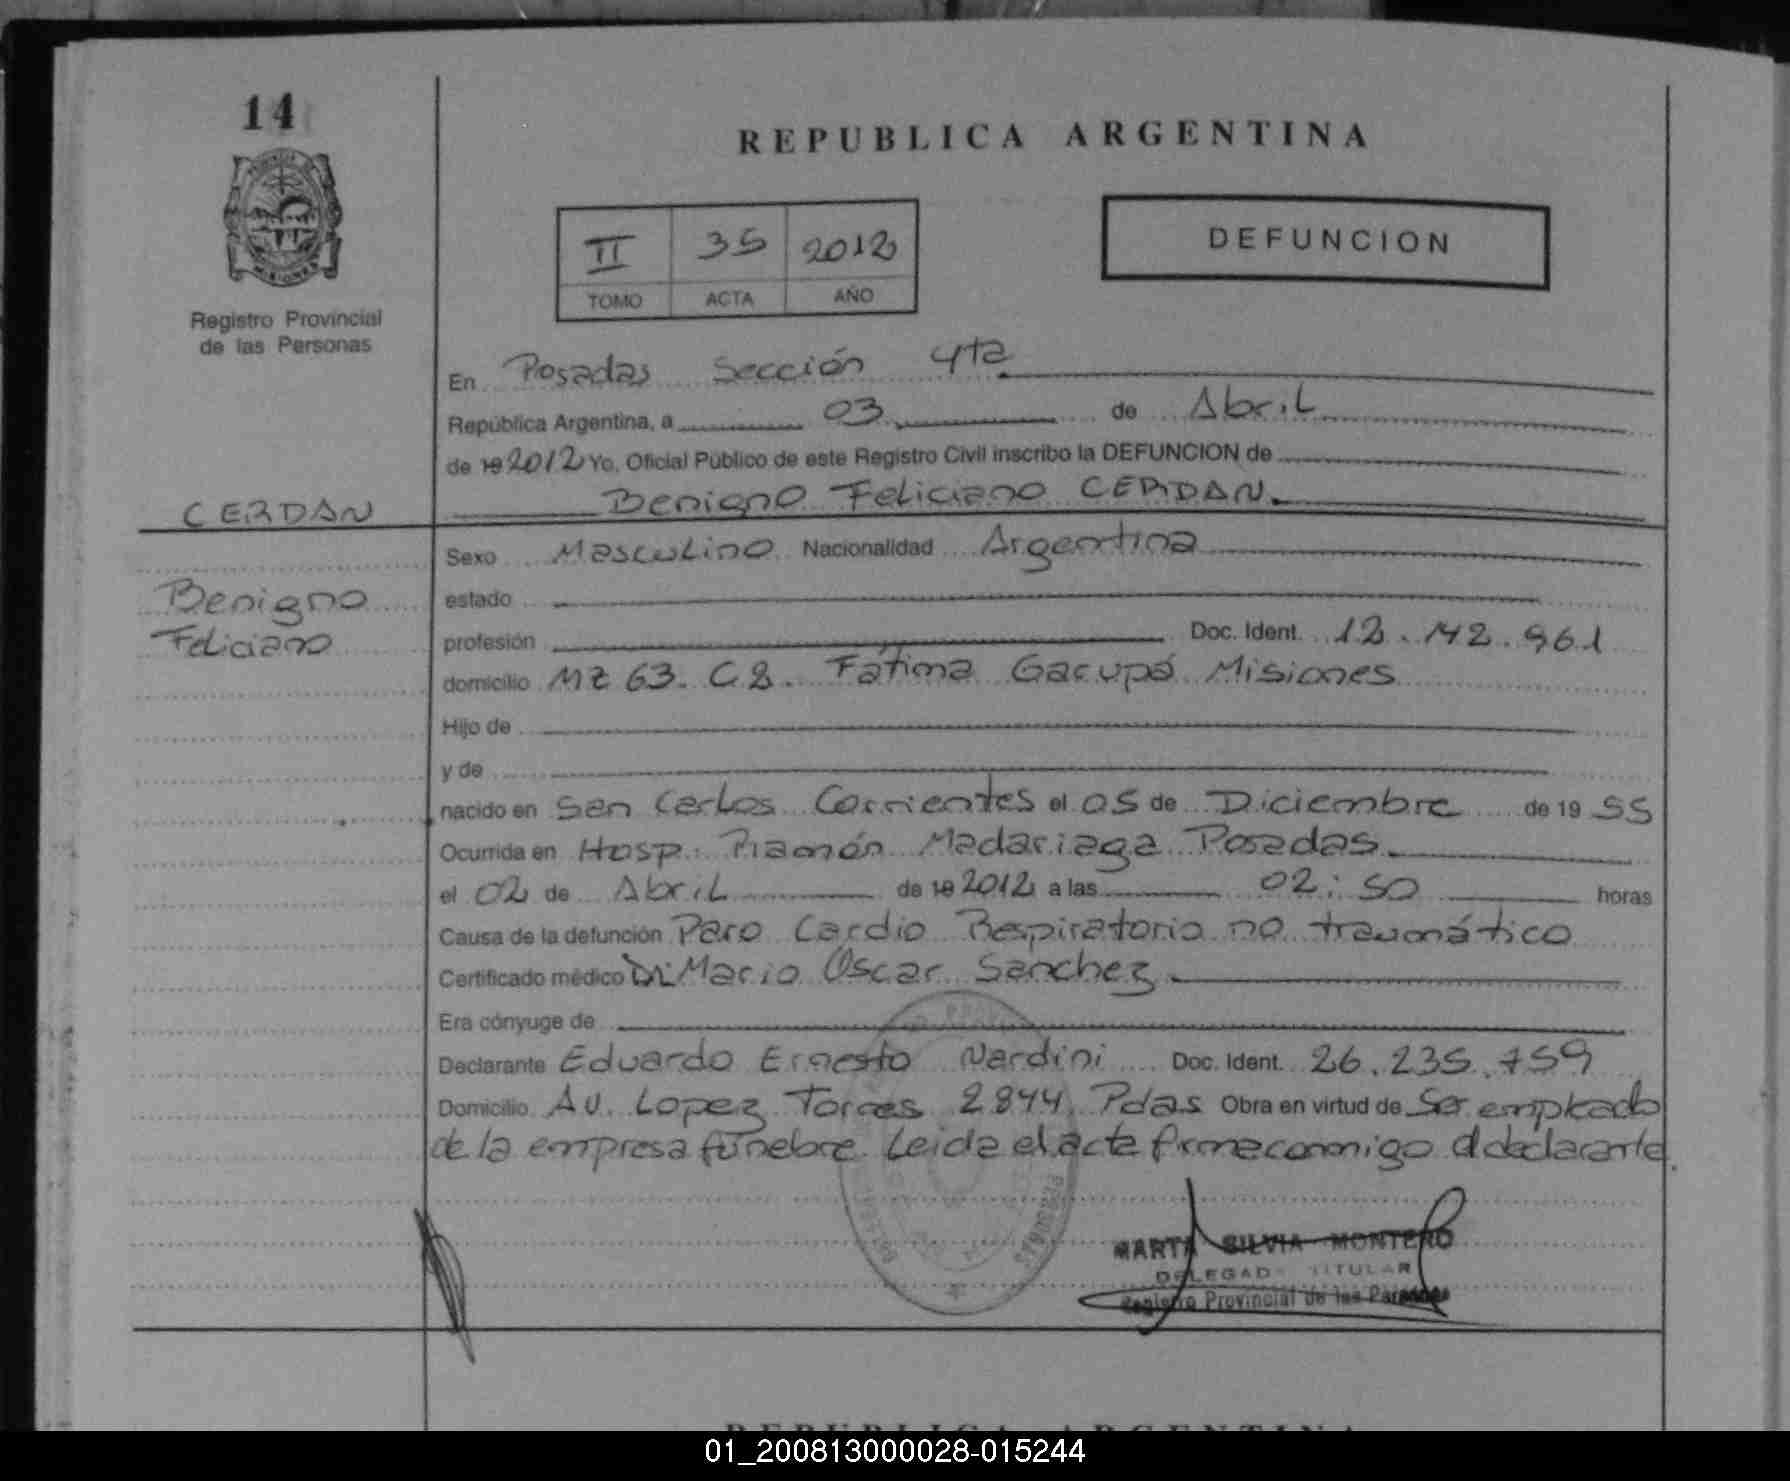 14
REPUBLICA ARGENTINA
II 35 2012
TOMO ACTA AÑO
DEFUNCION
Registro Provincial
de las Personas
En Posadas Sección 4ta
República Argentina, a 03 de Abril
de 19 2012 Yo, Oficial Público de este Registro Civil inscribo la DEFUNCION de
CERDAN
Benigno Feliciano CERDAN.
Sexo Masculino Nacionalidad Argentina
Benigno
Feliciano
estado
profesión Doc. Ident. 12.142.961
domicilio Mz 63. C 8. Fátima Garupá Misiones
Hijo de
y de
nacido en San Carlos Corrientes el 05 de Diciembre de 19 55
Ocurrida en Hosp. Ramón Madariaga Posadas.
el 02 de Abril de 19 2012 a las 02:50 horas
Causa de la defunción Paro Cardio Respiratorio no traumático
Certificado médico Dr. Mario Oscar Sanchez
Era cónyuge de
Declarante Eduardo Ernesto Nardini Doc. Ident. 26.235.759
Domicilio Av. Lopez Torres 2844. Pdas Obra en virtud de Ser empleado
de la empresa fúnebre. Leida el acta firma conmigo el declarante.
MARTA SILVIA MONTERO
DELEGADA TITULAR
Registro Provincial de las Personas
REPUBLICA ARGENTINA
01_200813000028-015244